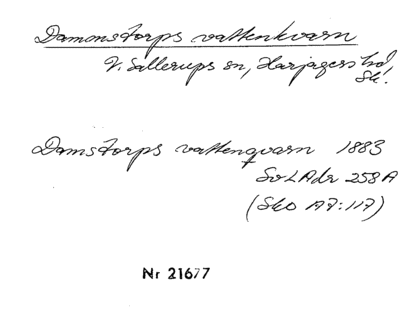 Dammstorps vattenkvarn
V. Sallerups sn, Harjagers hd,
Sk.
Damstorps vattenqvarn 1883
SvLAdr 258A
(SkO A7:117)
Nr 21677